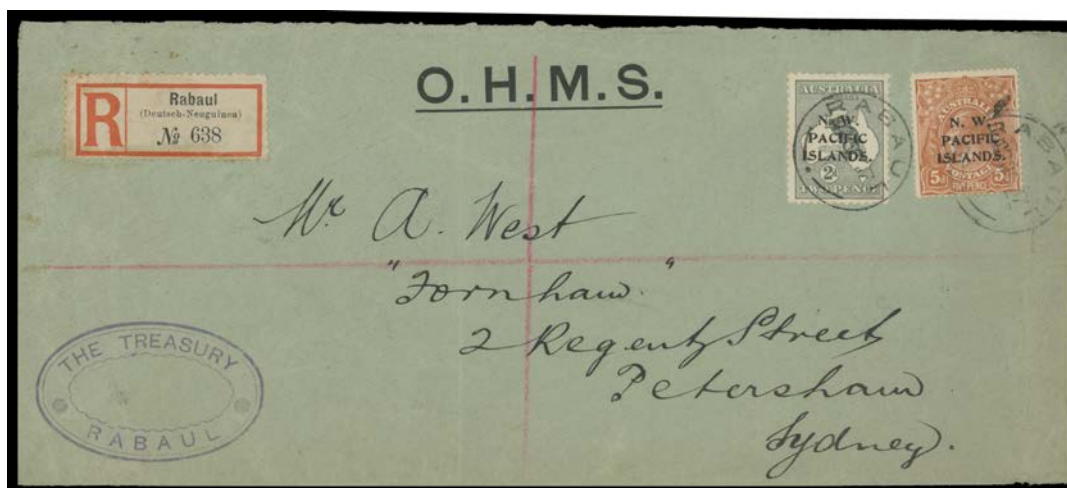 O.H.M.S.
R
Rabaul
(Deutsch-Neuguinea)
№ 638
AUSTRALIA
N. W.
PACIFIC
ISLANDS.
2d
TWO PENCE
RABAUL
AUSTRALIA
N. W.
PACIFIC
ISLANDS.
5d POSTAGE 5d
FIVE PENCE
RABAUL
Mr A. West
"Fornham"
2 Regent Street
Petersham
Sydney.
THE TREASURY
RABAUL